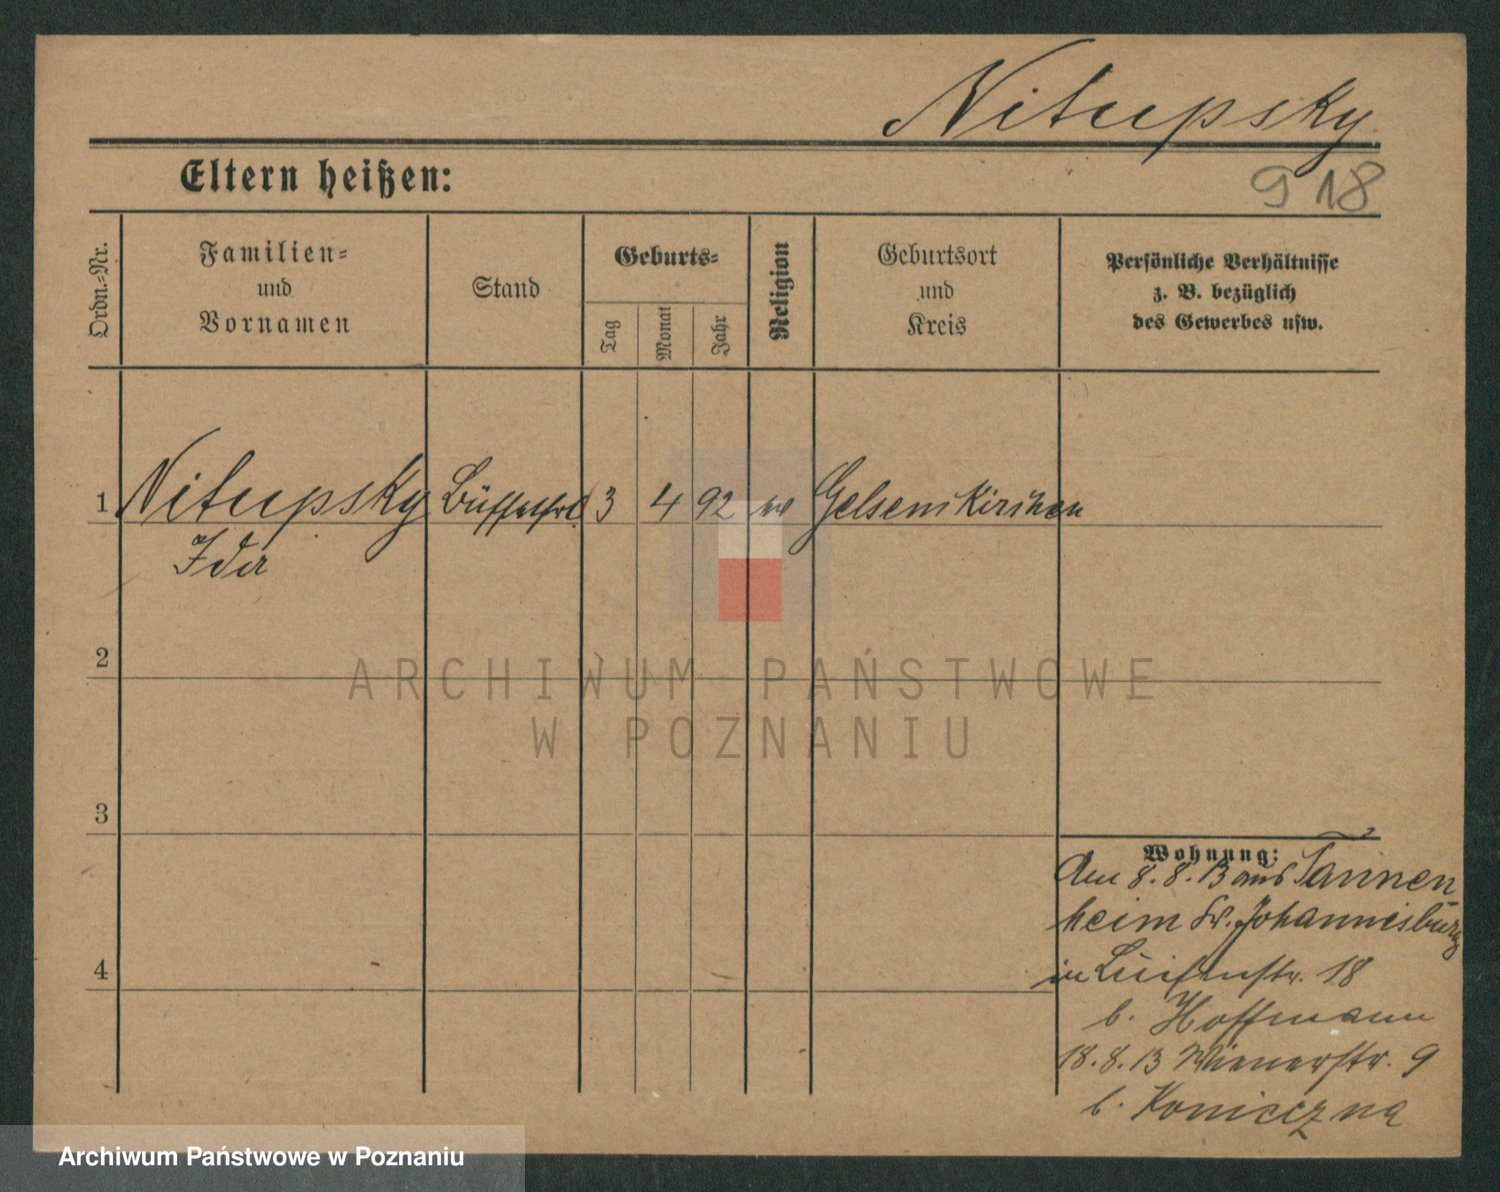 Nitupsky
Eltern heißen:
918
Ordn.-Nr.
Familien-
und
Vornamen
Stand
Geburts-
Tag
Monat
Jahr
Religion
Geburtsort
und
Kreis
Persönliche Verhältnisse
z. B. bezüglich
des Gewerbes usw.
1 Nitupsky Büffetfrl. 3 4 92 Gelsenkirchen
Ida
2
3
4
Wohnung:
Am 8.8.13 aus Tannen-
heim Kr. Johannisburg
in Luisenstr. 18
b. Hoffmann
18.8.13 Wienerstr. 9
b. Konieczna
ARCHIWUM PAŃSTWOWE
W POZNANIU
Archiwum Państwowe w Poznaniu